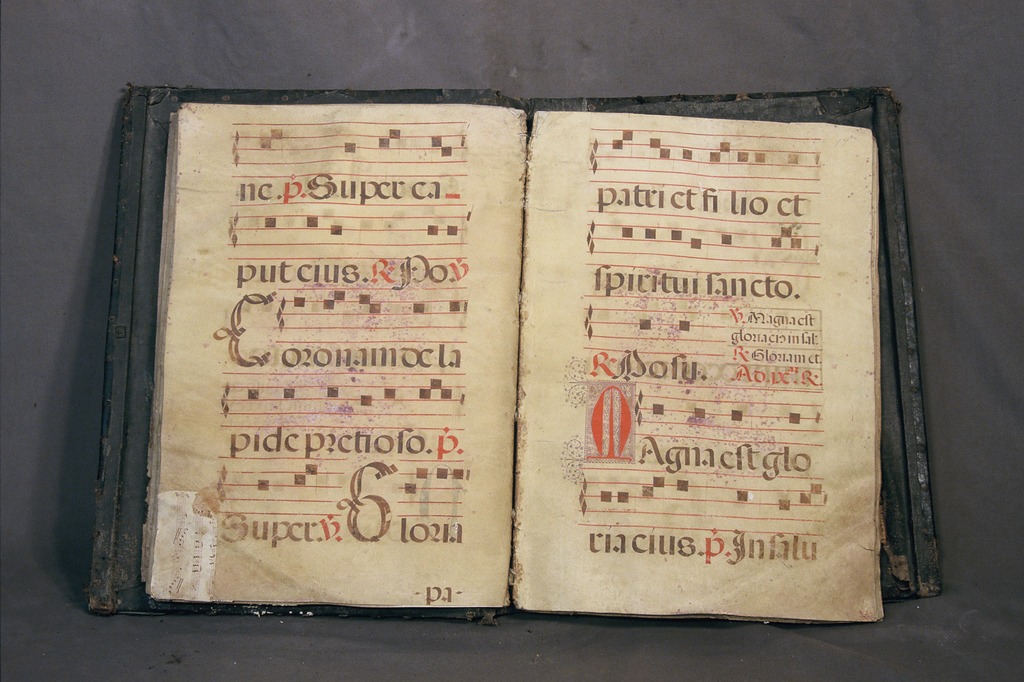 ne. p. Super ca
put eius. R. Po. V
Coronam de la
pide pretioso. p.
Super. V. Gloria
-pa-
patri et fi lio et
spiritui sancto.
V. Magna est
gloria ei9 in sal.
R. Gloriam et.
R. Posu. Ad R.
MAgna est glo
ria eius. p. In salu